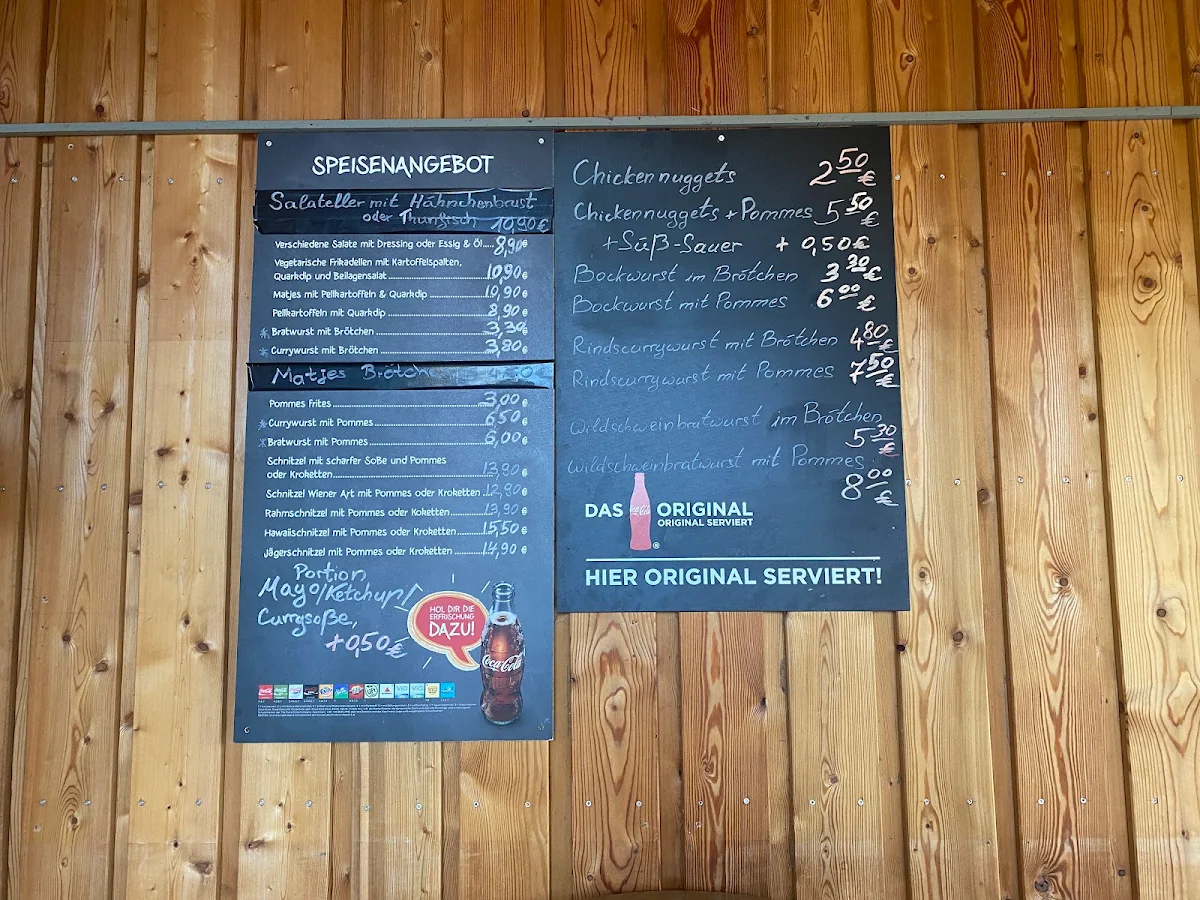 SPEISENANGEBOT
Salatteller mit Hähnchenbrust
oder Thunfisch 10,90€
Verschiedene Salate mit Dressing oder Essig & Öl.... 8,90€
Vegetarische Frikadellen mit Kartoffelspalten,
Quarkdip und Beilagensalat ........ 10,90€
Matjes mit Pellkartoffeln & Quarkdip ........ 10,90€
Pellkartoffeln mit Quarkdip ........ 8,90€
Bratwurst mit Brötchen ........ 3,30€
Currywurst mit Brötchen ........ 3,80€
Matjes Brötchen
Pommes Frites ........ 3,00€
Currywurst mit Pommes ........ 6,50€
Bratwurst mit Pommes ........ 6,00€
Schnitzel mit scharfer Soße und Pommes
oder Kroketten ........ 13,90€
Schnitzel Wiener Art mit Pommes oder Kroketten ... 12,90€
Rahmschnitzel mit Pommes oder Koketten ........ 13,90€
Hawaiischnitzel mit Pommes oder Kroketten ........ 15,50€
Jägerschnitzel mit Pommes oder Kroketten ........ 14,90€
Portion
Mayo/Ketchup/
Currysoße,
+0,50€
HOL DIR DIE
ERFRISCHUNG
DAZU!
Coca-Cola
Chickennuggets 2,50€
Chickennuggets + Pommes 5,50€
+ Süß-Sauer + 0,50€
Bockwurst im Brötchen 3,30€
Bockwurst mit Pommes 6,00€
Rindscurrywurst mit Brötchen 4,80€
Rindscurrywurst mit Pommes 7,50€
Wildschweinbratwurst im Brötchen
5,30€
Wildschweinbratwurst mit Pommes.
8,00€
DAS Coca-Cola ORIGINAL
ORIGINAL SERVIERT
HIER ORIGINAL SERVIERT!